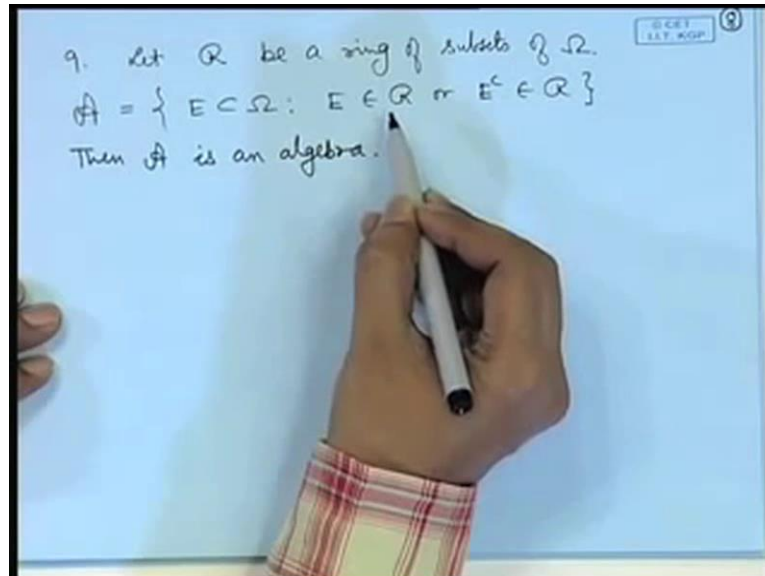 © CET
I.I.T. KGP
8
9. Let R be a ring of subsets of Ω.
A = { E ⊂ Ω : E ∈ R or Eᶜ ∈ R }
Then A is an algebra.